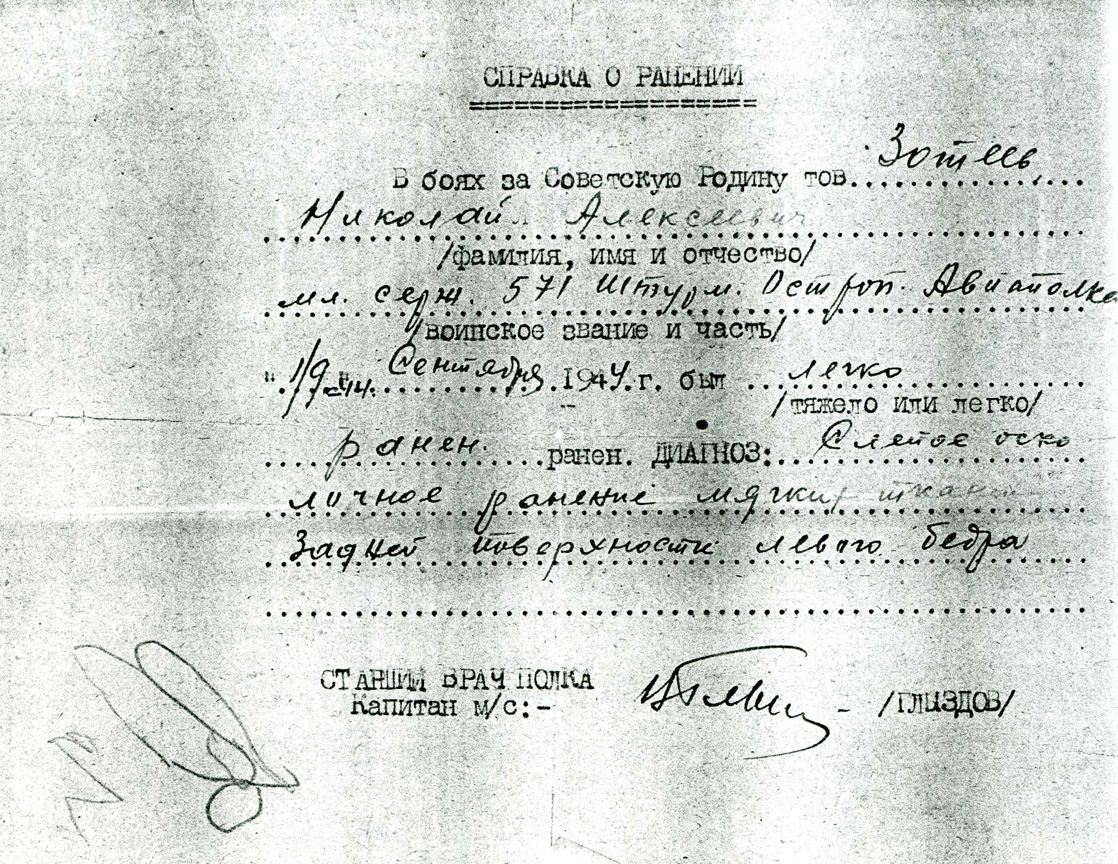 СПРАВКА О РАНЕНИИ
В боях за Советскую Родину тов. Зотеев
Николай Алексеевич
/фамилия, имя и отчество/
мл. серж. 571 Штурм. Остроп. Авиаполка
/воинское звание и часть/
Сентября 1944.г. был легко
/тяжело или легко/
ранен. ранен. ДИАГНОЗ: Слепое оско
лочное ранение мягких ткани
Задней поверхности левого бедра
СТАРШИЙ ВРАЧ ПОЛКА
Капитан м/с:- - /ГЛЫЗДОВ/